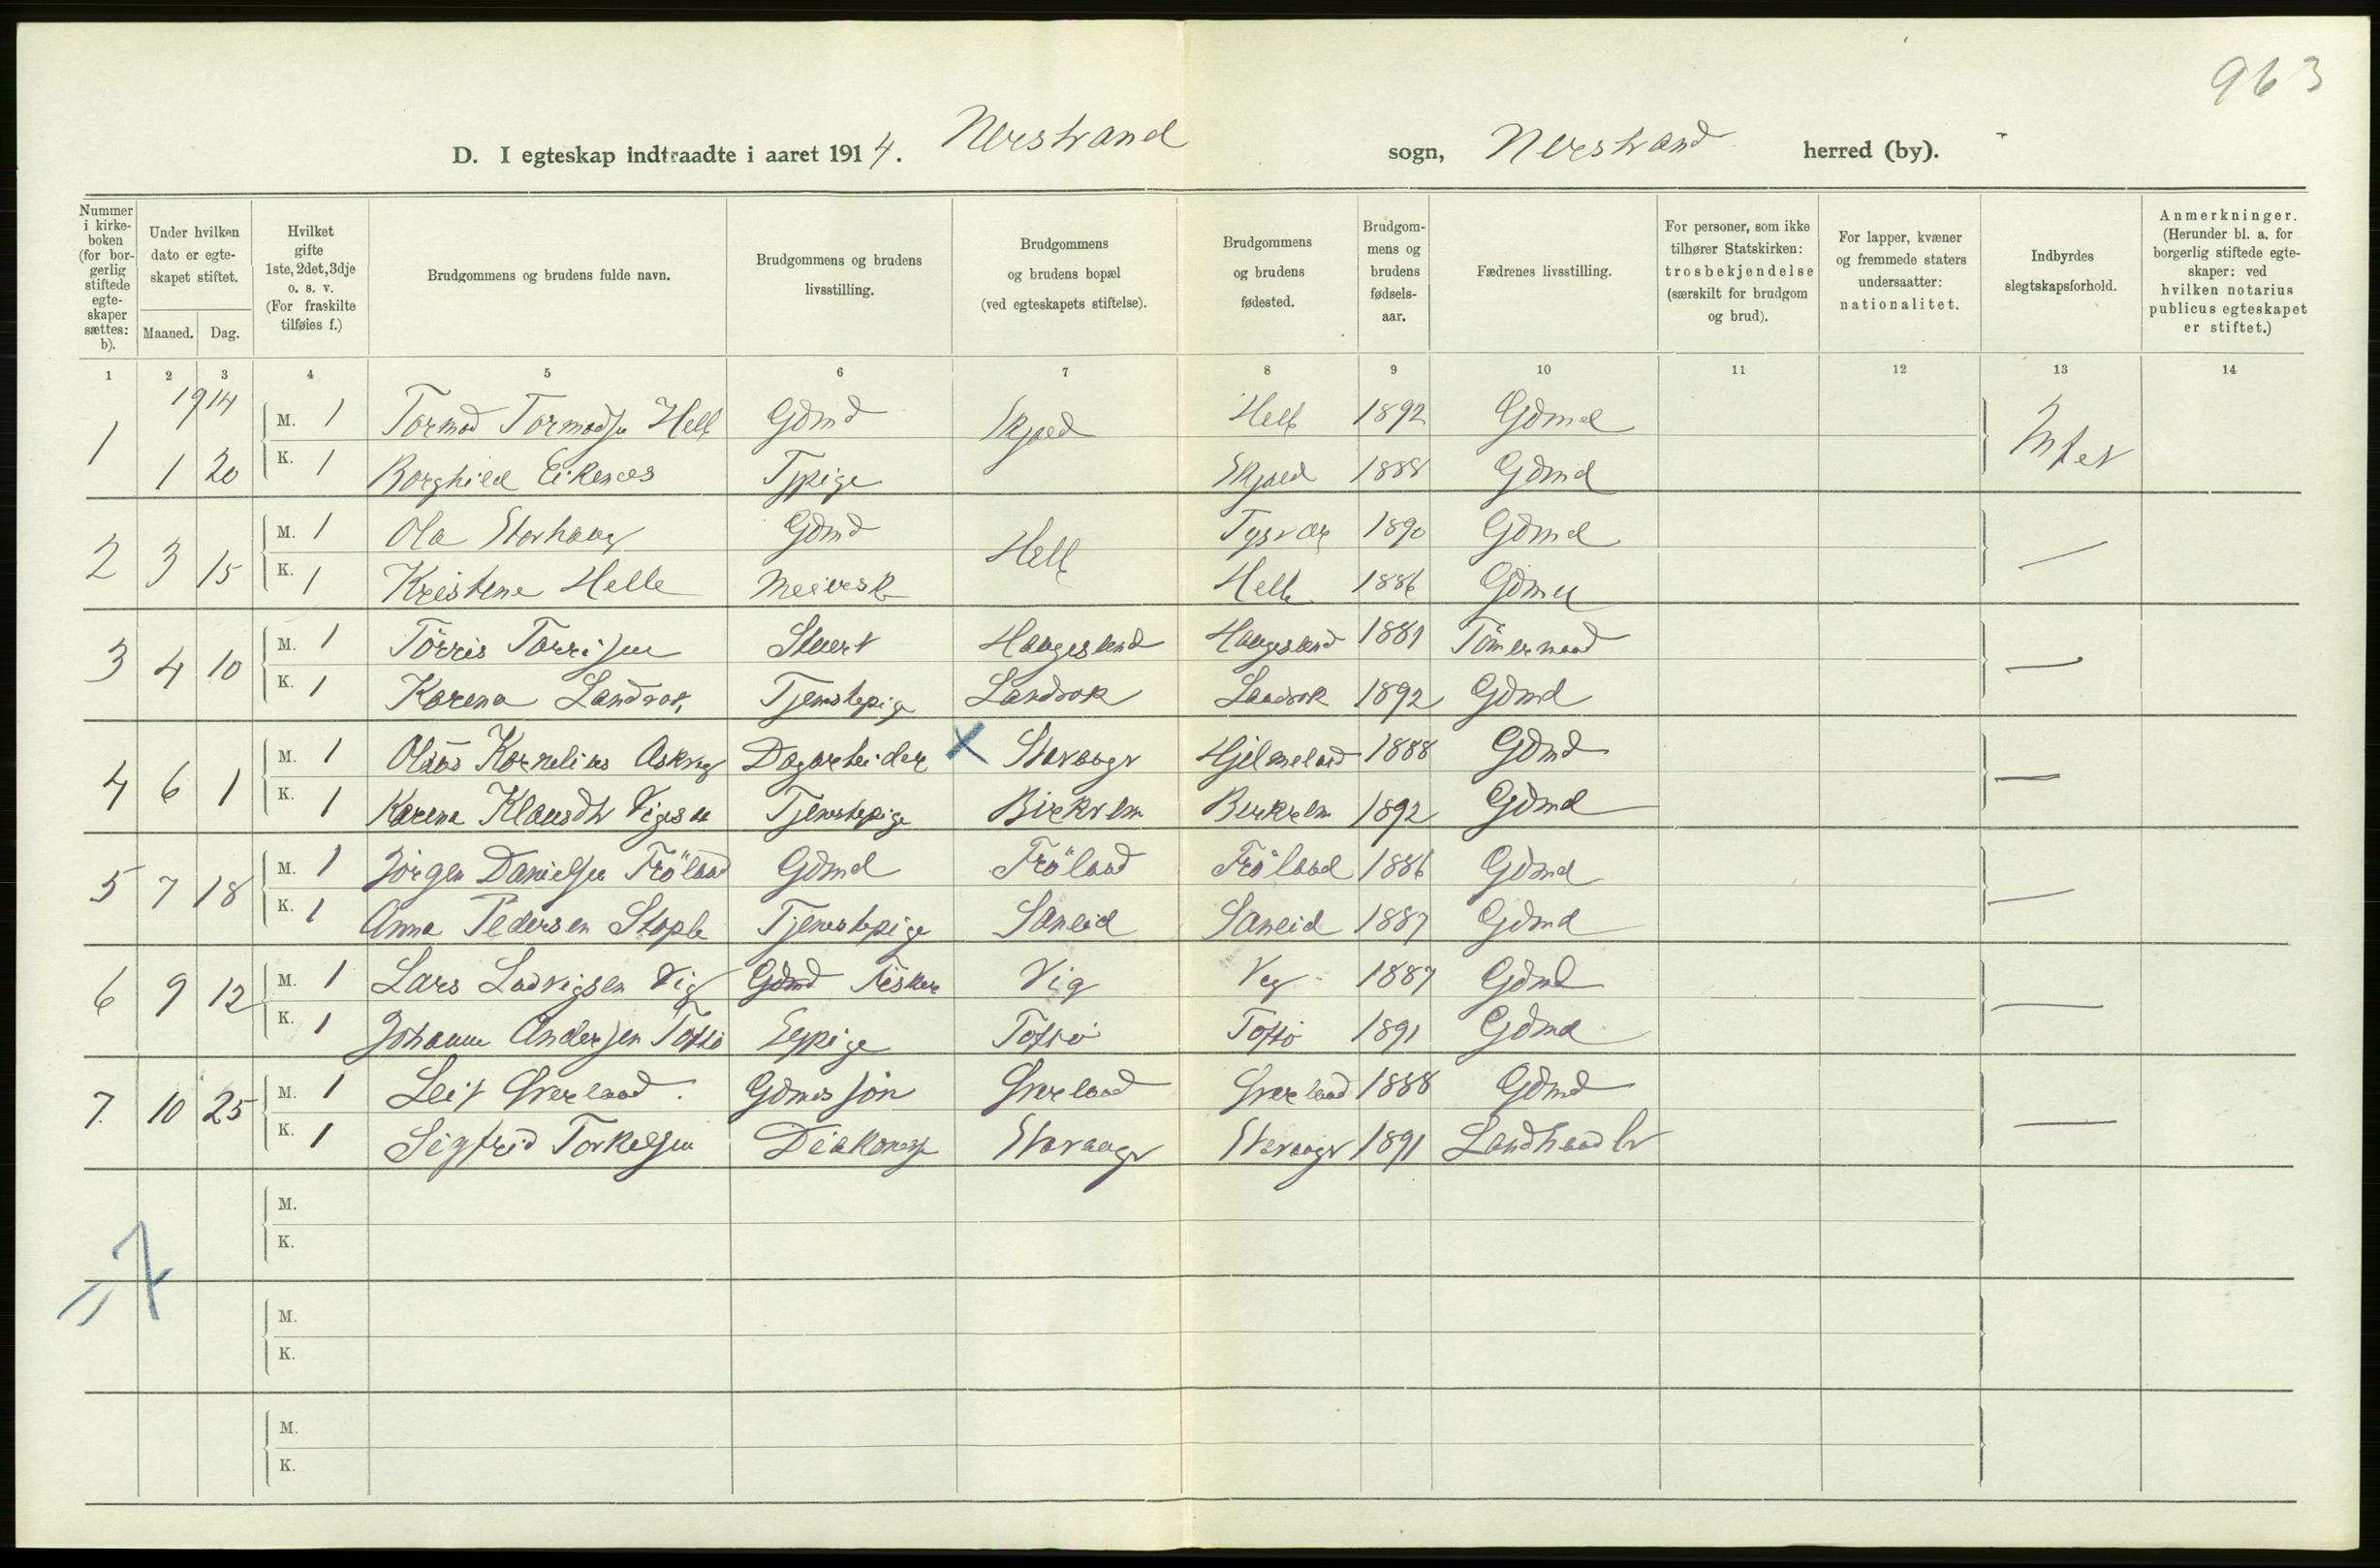 963
D. I egteskap indtraadte i aaret 1914. Nerstrand sogn, Nerstrand herred (by).
Nummer i kirke-boken (for bor-gerlig stiftede egte-skaper sættes: b).
Under hvilken dato er egte-skapet stiftet.
Maaned. Dag.
Hvilket gifte 1ste, 2det, 3dje o. s. v. (For fraskilte tilføies f.)
Brudgommens og brudens fulde navn.
Brudgommens og brudens livsstilling.
Brudgommens og brudens bopæl (ved egteskapets stiftelse).
Brudgommens og brudens fødested.
Brudgom-mens og brudens fødsels-aar.
Fædrenes livsstilling.
For personer, som ikke tilhører Statskirken: trosbekjendelse (særskilt for brudgom og brud).
For lapper, kvæner og fremmede staters undersaatter: nationalitet.
Indbyrdes slegtskapsforhold.
Anmerkninger. (Herunder bl. a. for borgerlig stiftede egte-skaper: ved hvilken notarius publicus egteskapet er stiftet.)
1 2 3 4 5 6 7 8 9 10 11 12 13 14
1914
1 M. 1 Tormod Tormodsen Helle Gdmd Skjold Helle 1892 Gdmd Intet
1 20 K. 1 Borghild Eikenes Tjpige Skjold 1888 Gdmd
2 3 15 M. 1 Ola Storhaug Gdmd Helle Tysvær 1890 Gdmd —
K. 1 Kristine Helle Meierske Helle 1886 Gdmd
3 4 10 M. 1 Törris Torrisen Stuert Haugesund Haugesund 1881 Tömermand —
K. 1 Karena Landrok Tjenestepige Landrok Landrok 1892 Gdmd
4 6 1 M. 1 Olaus Kornelius Askvig Dagarbeider X Stavanger Hjelmeland 1888 Gdmd —
K. 1 Karena Klausdtr Vigesa Tjenestepige Birkrem Birkrem 1892 Gdmd
5 7 18 M. 1 Jörgen Danielsen Fröland Gdmd Fröland Fröland 1886 Gdmd —
K. 1 Anna Pedersen Stople Tjenestepige Saneid Saneid 1887 Gdmd
6 9 12 M. 1 Lars Ludvigsen Vig Gdmd Fisker Vig Vig 1887 Gdmd —
K. 1 Johanne Andersen Toftö pige Toftö Toftö 1891 Gdmd
7. 10 25 M. 1 Leif Sverland. Gdmssön Sverland Sverland 1888 Gdmd —
K. 1 Sigfrid Torkelsen Diakonesse Stavanger Stavanger 1891 Landhandler
M.
K.
= 7
M.
K.
M.
K.